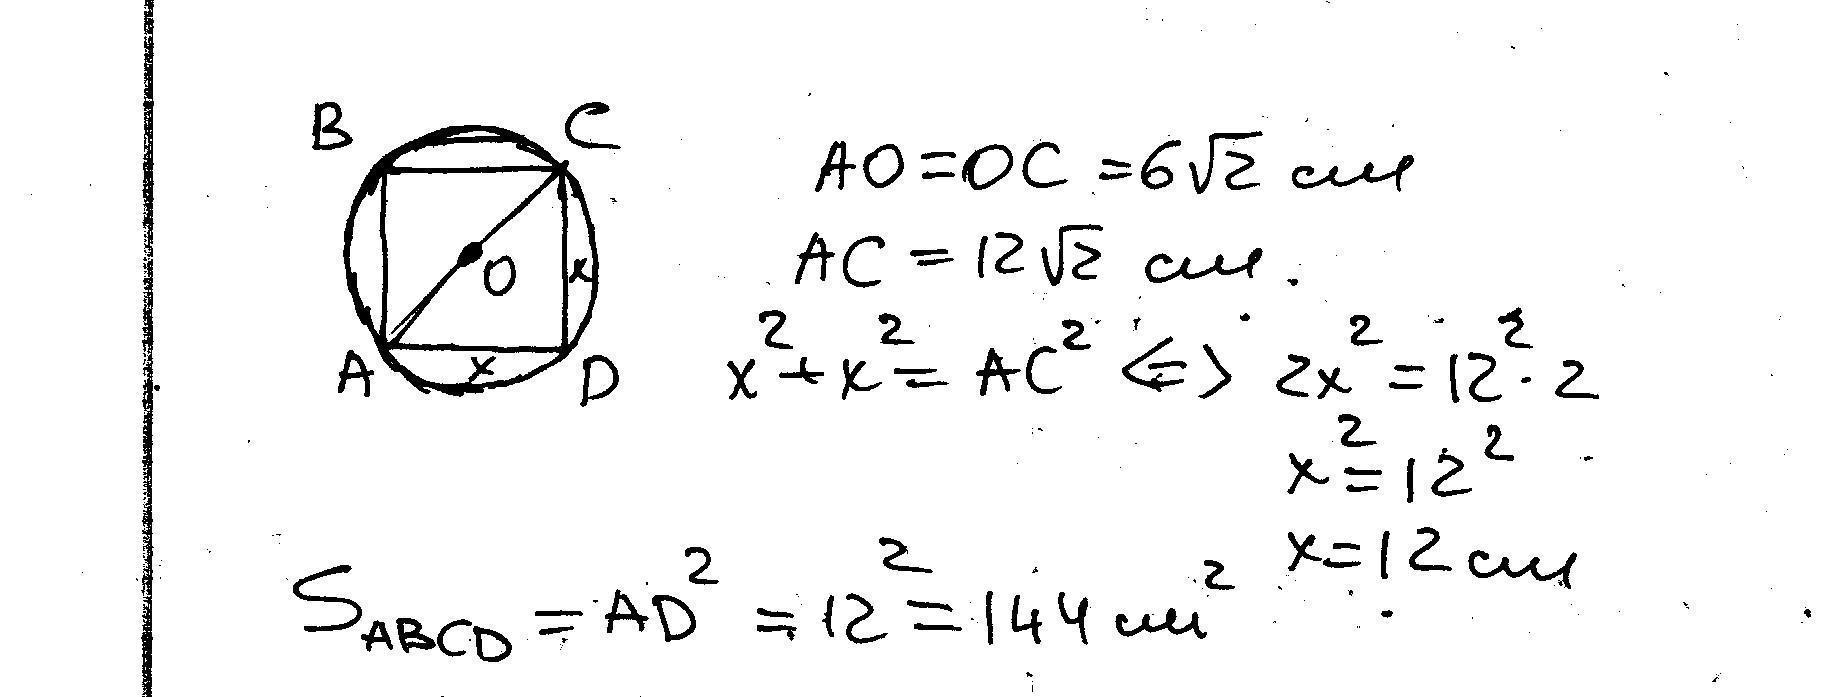 B C
O x
A x D
AO=OC=6√2 см
AC=12√2 см.
x²+x²=AC² <=> 2x²=12²·2
x²=12²
x=12 см
S_ABCD=AD²=12²=144 см²